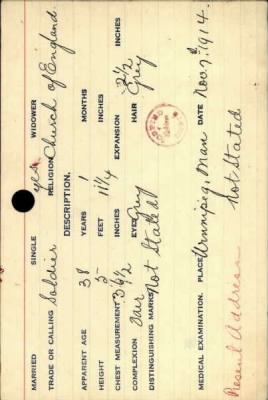 MARRIED SINGLE yes WIDOWER
TRADE OR CALLING Soldier RELIGION Church of England.
DESCRIPTION.
APPARENT AGE 38 YEARS 1 MONTHS
HEIGHT 5 FEET 11 1/4 INCHES
CHEST MEASUREMENT 36 1/2 INCHES EXPANSION 2 1/2 INCHES
COMPLEXION Fair EYES Grey HAIR Grey
DISTINGUISHING MARKS Not Stated
MEDICAL EXAMINATION. PLACE Winnipeg, Man DATE Nov. 7th 1914.
Present Address Not Stated